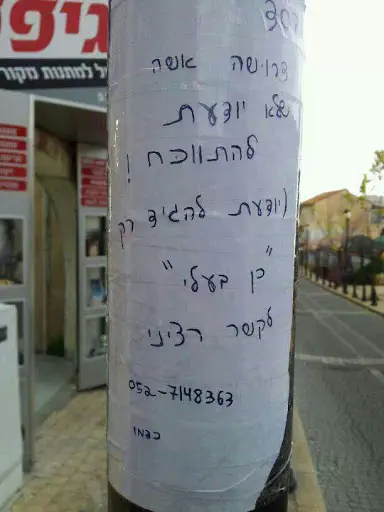 גיפ
ל למתנות מקור
דרושה אשה
שלא יודעת
להתווכח !
(יודעת להגיד רק
"כן בעלי"
לקשר רציני
052-7148363